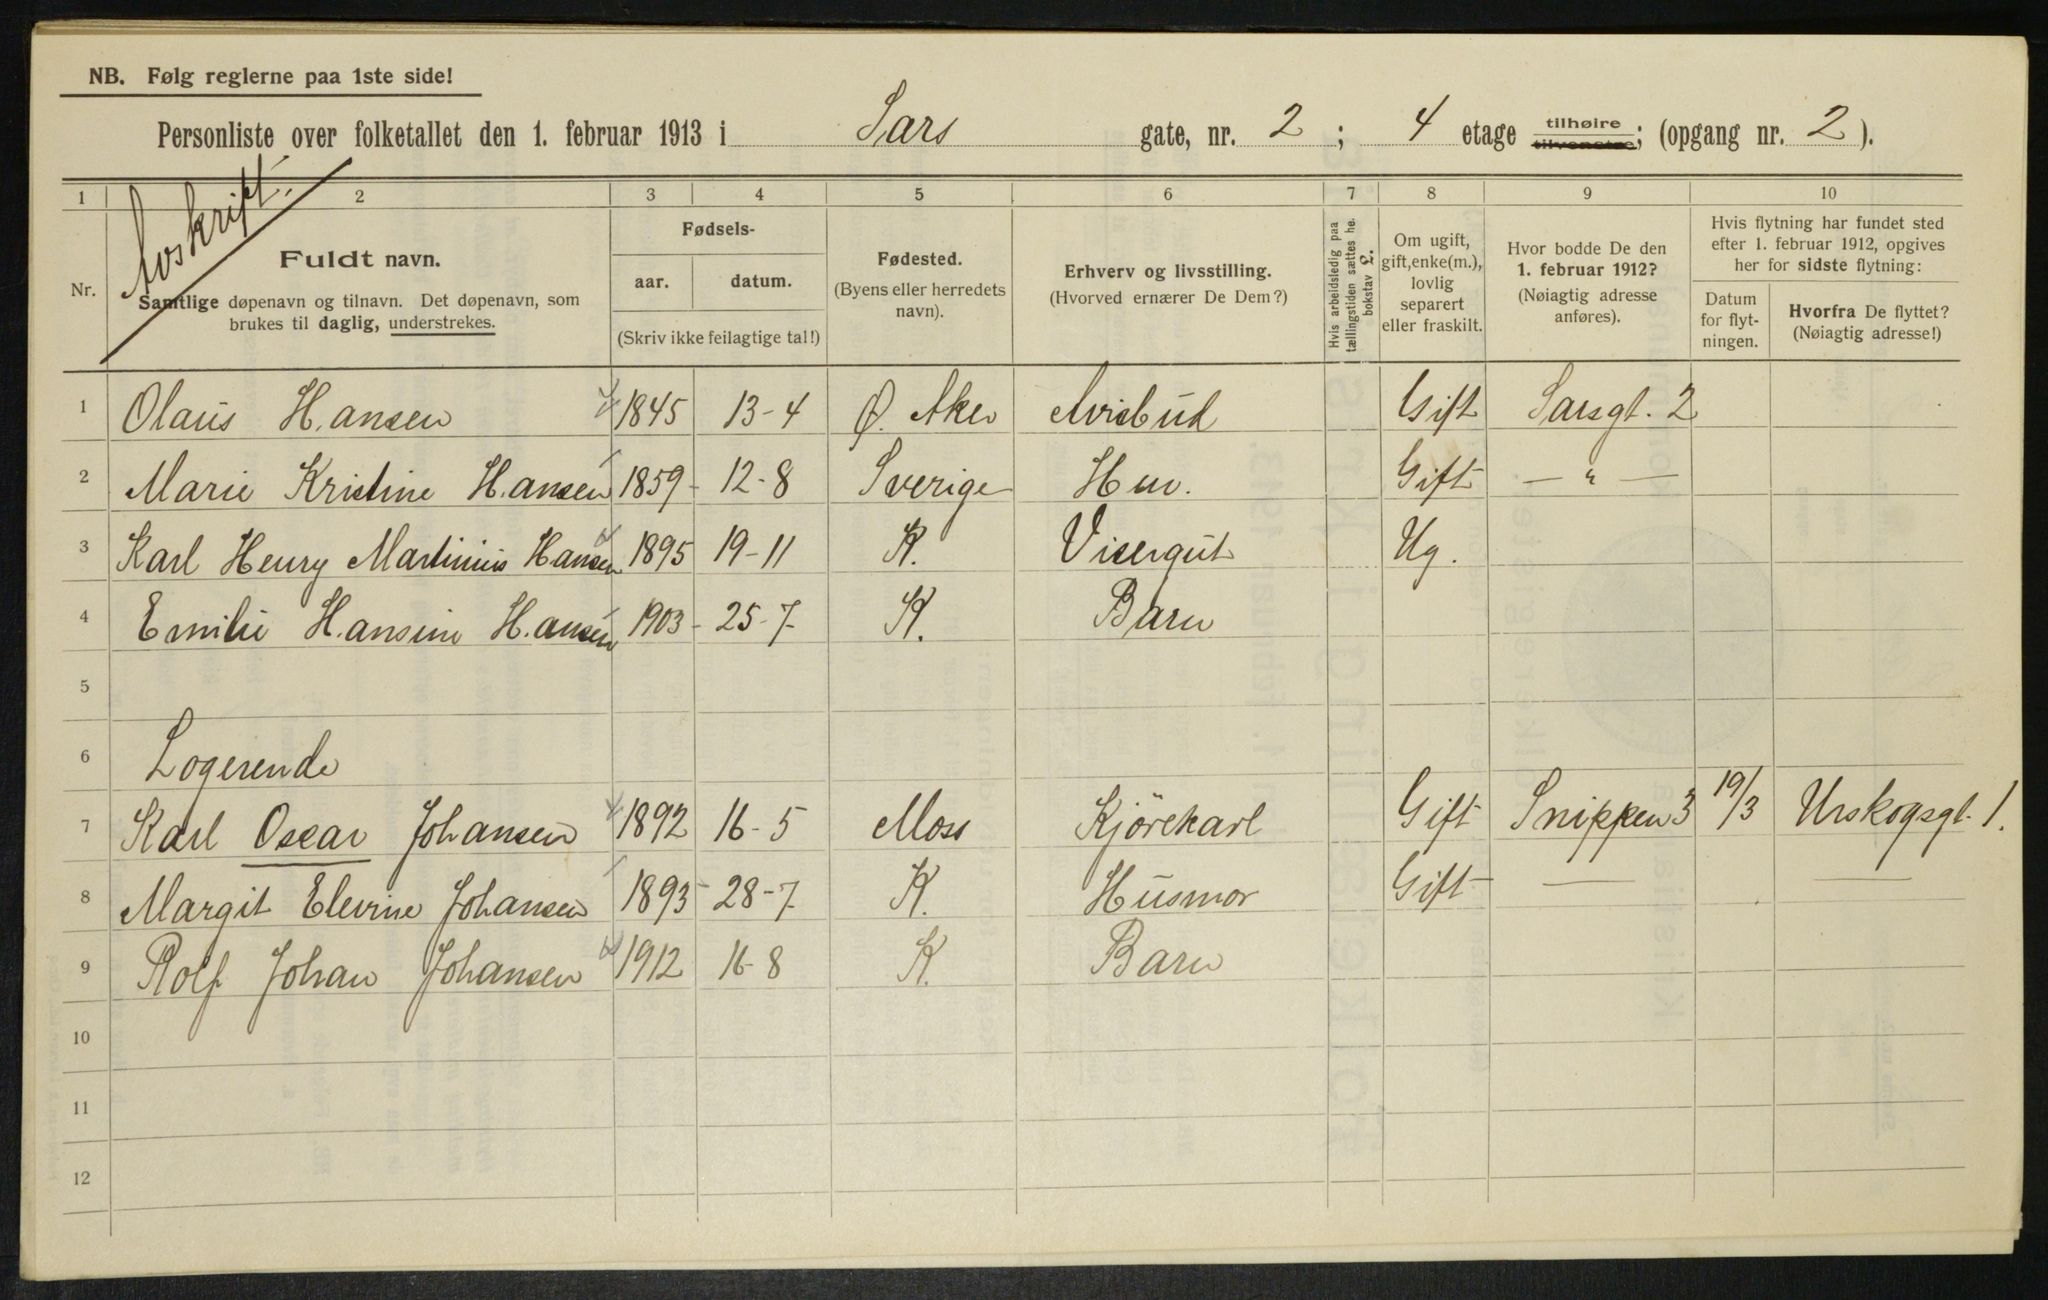 NB. Følg reglerne paa 1ste side!
Personliste over folketallet den 1. februar 1913 i Sars gate, nr. 2 ; 4 etage tilhøire tilvenstre; (opgang nr. 2 ).
Avskrift.
1 2 3 4 5 6 7 8 9 10
Nr.
Fuldt navn.
Samtlige døpenavn og tilnavn. Det døpenavn, som
brukes til daglig, understrekes.
Fødsels-
aar. datum.
(Skriv ikke feilagtige tal!)
Fødested.
(Byens eller herredets
navn).
Erhverv og livsstilling.
(Hvorved ernærer De Dem?)
Hvis arbeidsledig paa
tællingstiden sættes her
bokstav L.
Om ugift,
gift, enke(m.),
lovlig
separert
eller fraskilt.
Hvor bodde De den
1. februar 1912?
(Nøiagtig adresse
anføres).
Hvis flytning har fundet sted
efter 1. februar 1912, opgives
her for sidste flytning:
Datum
for flyt-
ningen.
Hvorfra De flyttet?
(Nøiagtig adresse!)
1 Olaus Hansen 1845 13-4 Ø. Aker Avisbud Gift Sarsgt. 2
2 Marie Kristine Hansen 1859 - 12-8 Sverige Hm. Gift — " —
3 Karl Henry Martinius Hansen 1895 19-11 K. Visergut Ug.
4 Emilie Hansine Hansen 1903 - 25-7- K. Barn
5
6 Logerende
7 Karl Oscar Johansen 1892 16-5 Moss Kjörekarl Gift Snippen 3 19/3 Urskogsgt. 1.
8 Margit Elevine Johansen 1893 - 28-7- K. Husmor Gift — —
9 Rolf Johan Johansen 1912 16-8 K. Barn
10
11
12